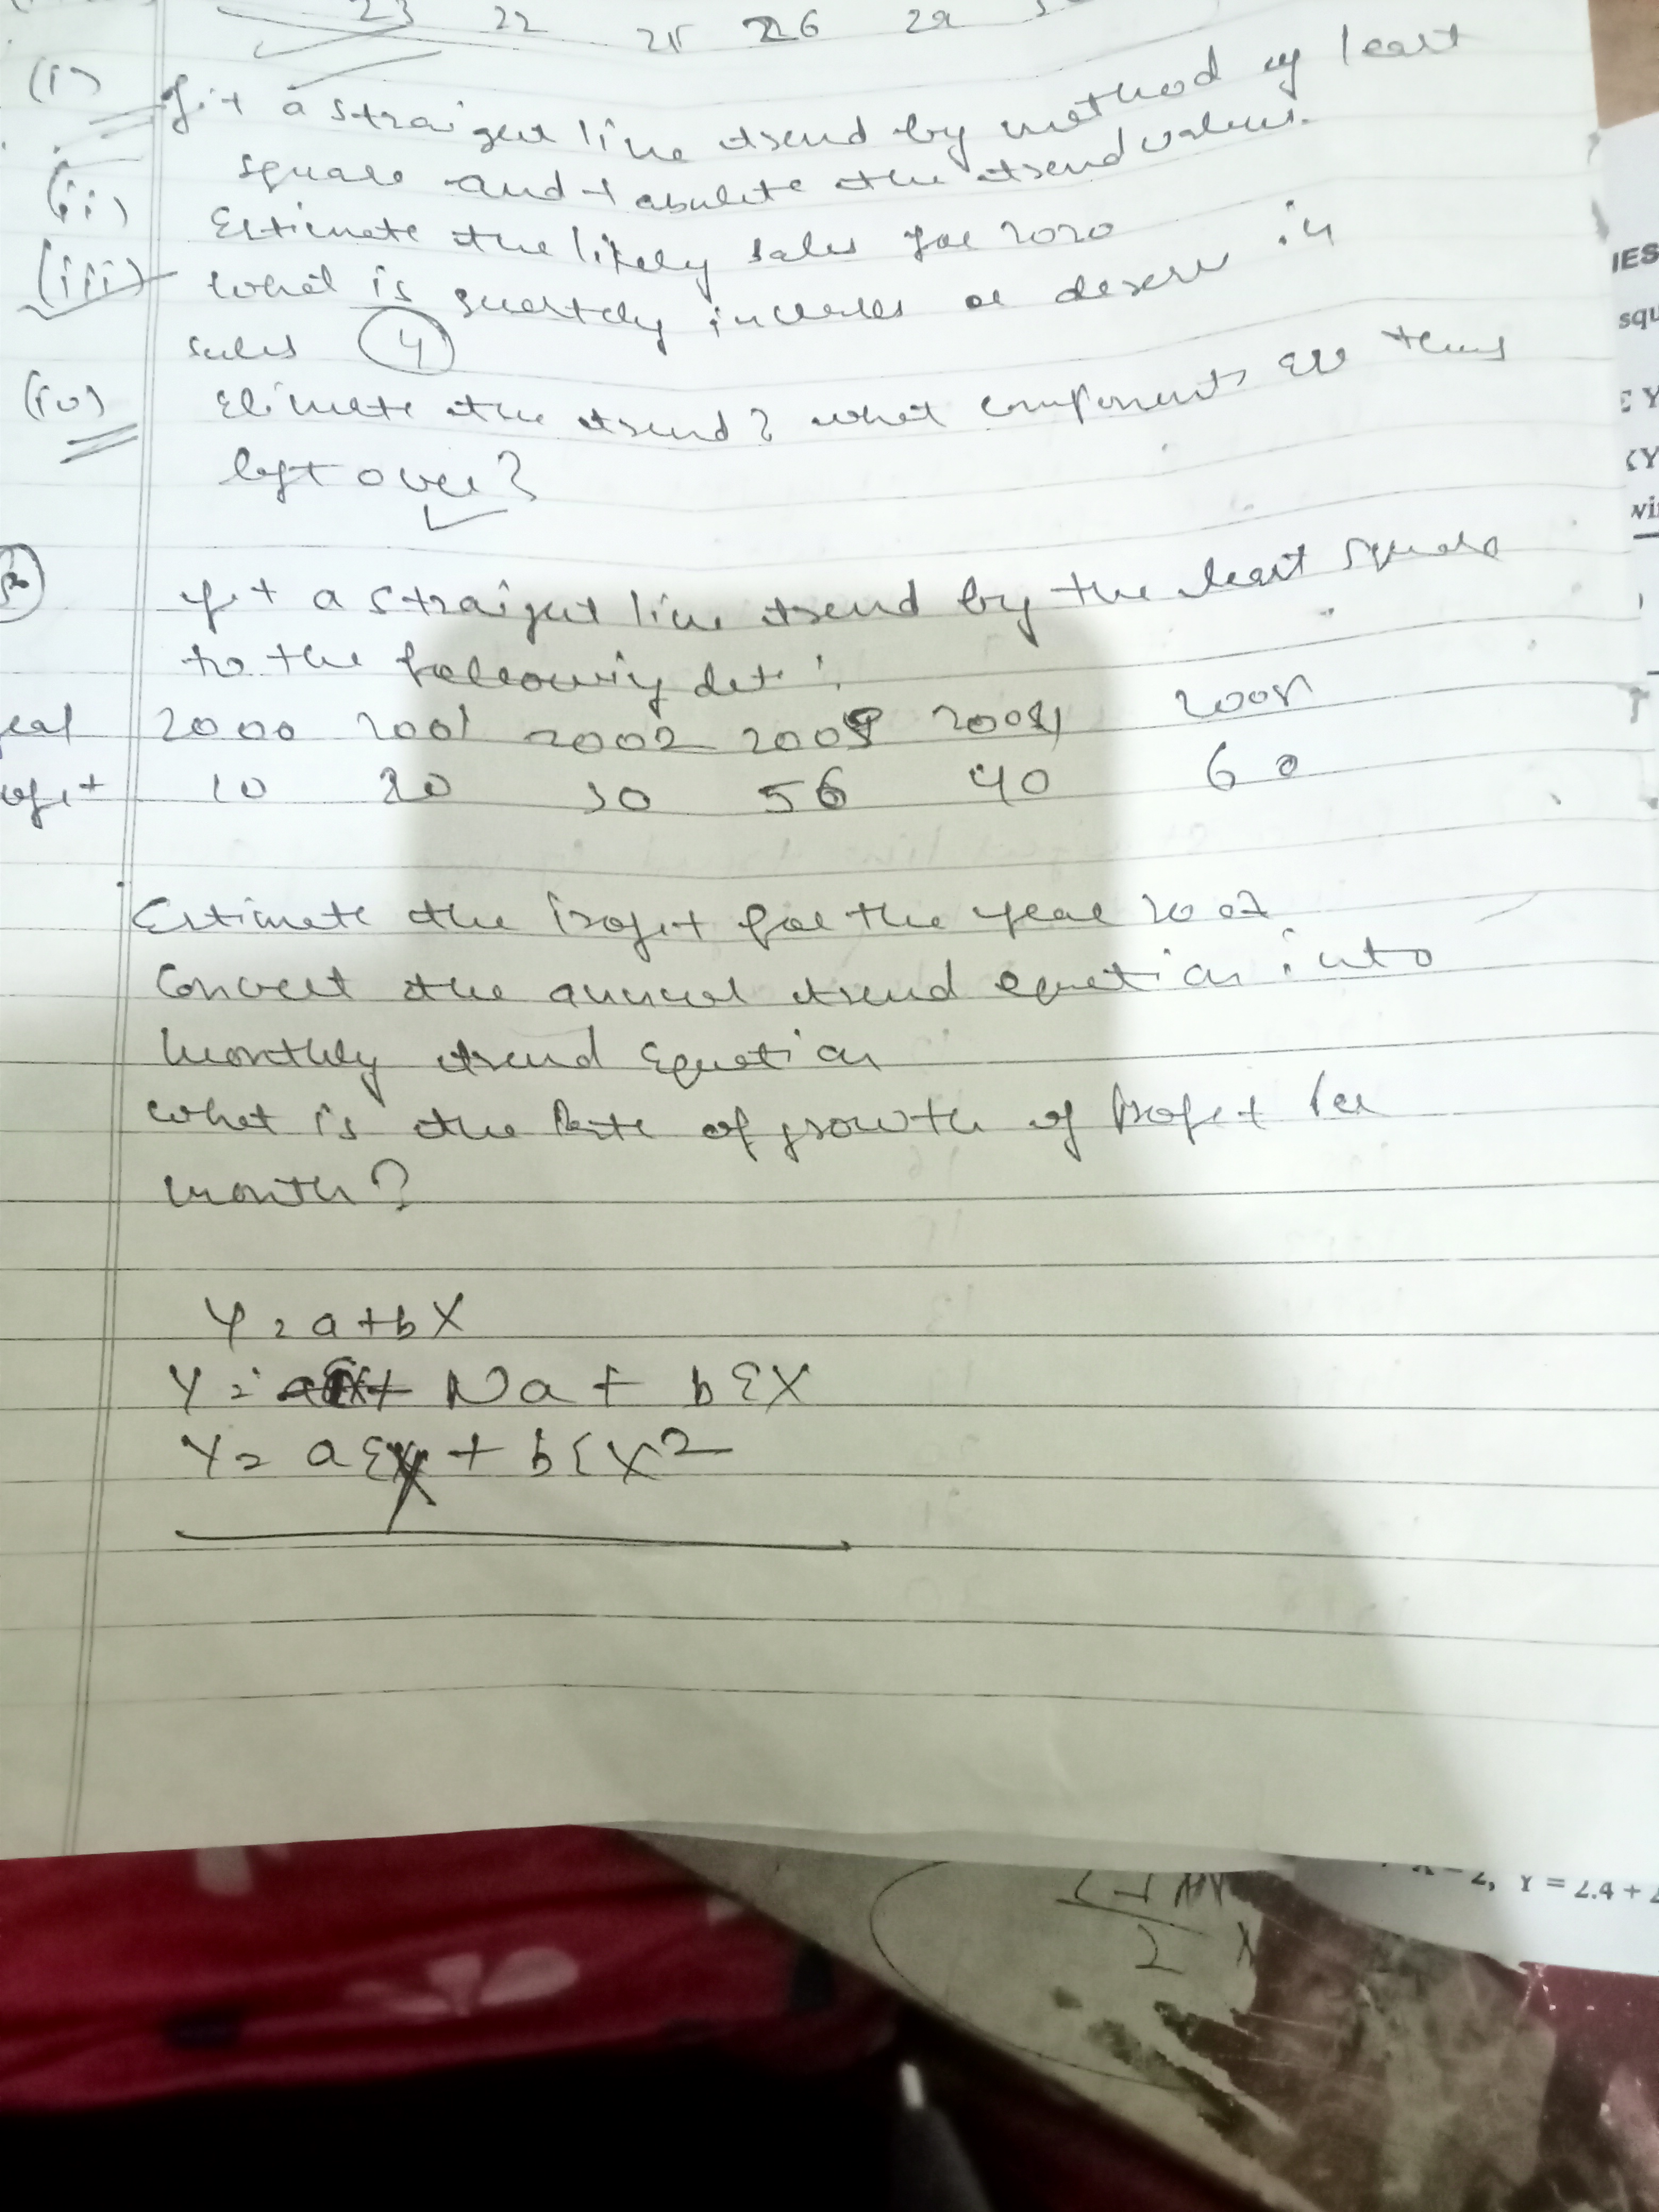 23 22 25 26 29
(i) fit a straight line trend by method of least
square and tabulate the trend values.
(ii) Estimate the likely sales for 2020
(iii) What is quarterly increase or decrease in
sales (4)
(iv) Eliminate the trend? what components are thus
left over?
fit a straight line trend by the least square
to the following data:
ear 2000 2001 2002 2003 2004 2005
ofit 10 20 30 56 40 60
Estimate the profit for the year 2007
Convert the annual trend equation into
monthly trend equation
what is the rate of growth of profit per
month?
Y = a + bX
Y = Na + bΣX
Y = aΣX + bΣX²
IES
squ
2, Y = 2.4 +
2